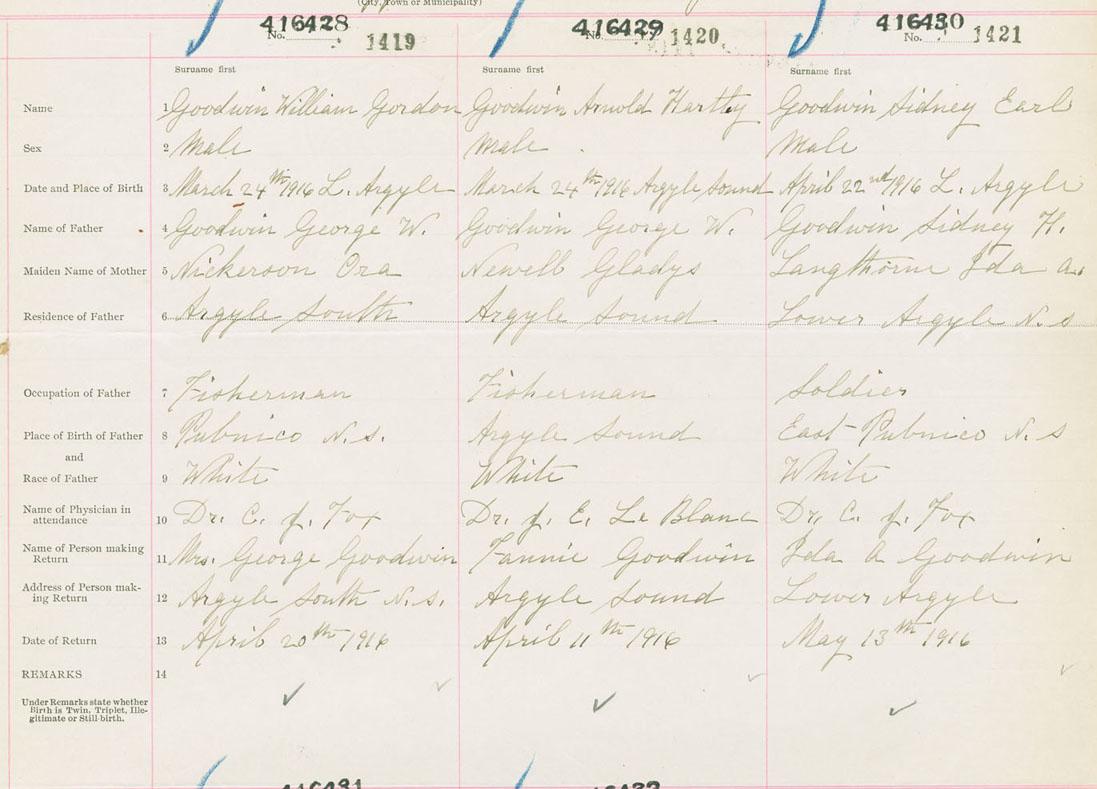 (City, Town or Municipality)
416428 416429 416430
No. 1419 No. 1420 No. 1421
Surname first Surname first Surname first
Name 1 Goodwin William Gordon Goodwin Arnold Hartly Goodwin Sidney Earl
Sex 2 Male Male Male
Date and Place of Birth 3 March 24th 1916 L. Argyle March 24th 1916 Argyle Sound April 22nd 1916 L. Argyle
Name of Father 4 Goodwin George W. Goodwin George W. Goodwin Sidney H.
Maiden Name of Mother 5 Nickerson Ora Newell Gladys Langthorne Ida A.
Residence of Father 6 Argyle South Argyle Sound Lower Argyle N. S
Occupation of Father 7 Fisherman Fisherman Soldier
Place of Birth of Father 8 Pubnico N. S. Argyle Sound East Pubnico N. S
and
Race of Father 9 White White White
Name of Physician in
attendance 10 Dr. C. J. Fox Dr. J. E. Le Blanc Dr. C. J. Fox
Name of Person making
Return 11 Mrs. George Goodwin Fannie Goodwin Ida A Goodwin
Address of Person mak-
ing Return 12 Argyle South N. S. Argyle Sound Lower Argyle
Date of Return 13 April 20th 1916 April 11th 1916 May 13th 1916
REMARKS 14
Under Remarks state whether
Birth is Twin, Triplet, Ille-
gitimate or Still-birth.
416431 416432